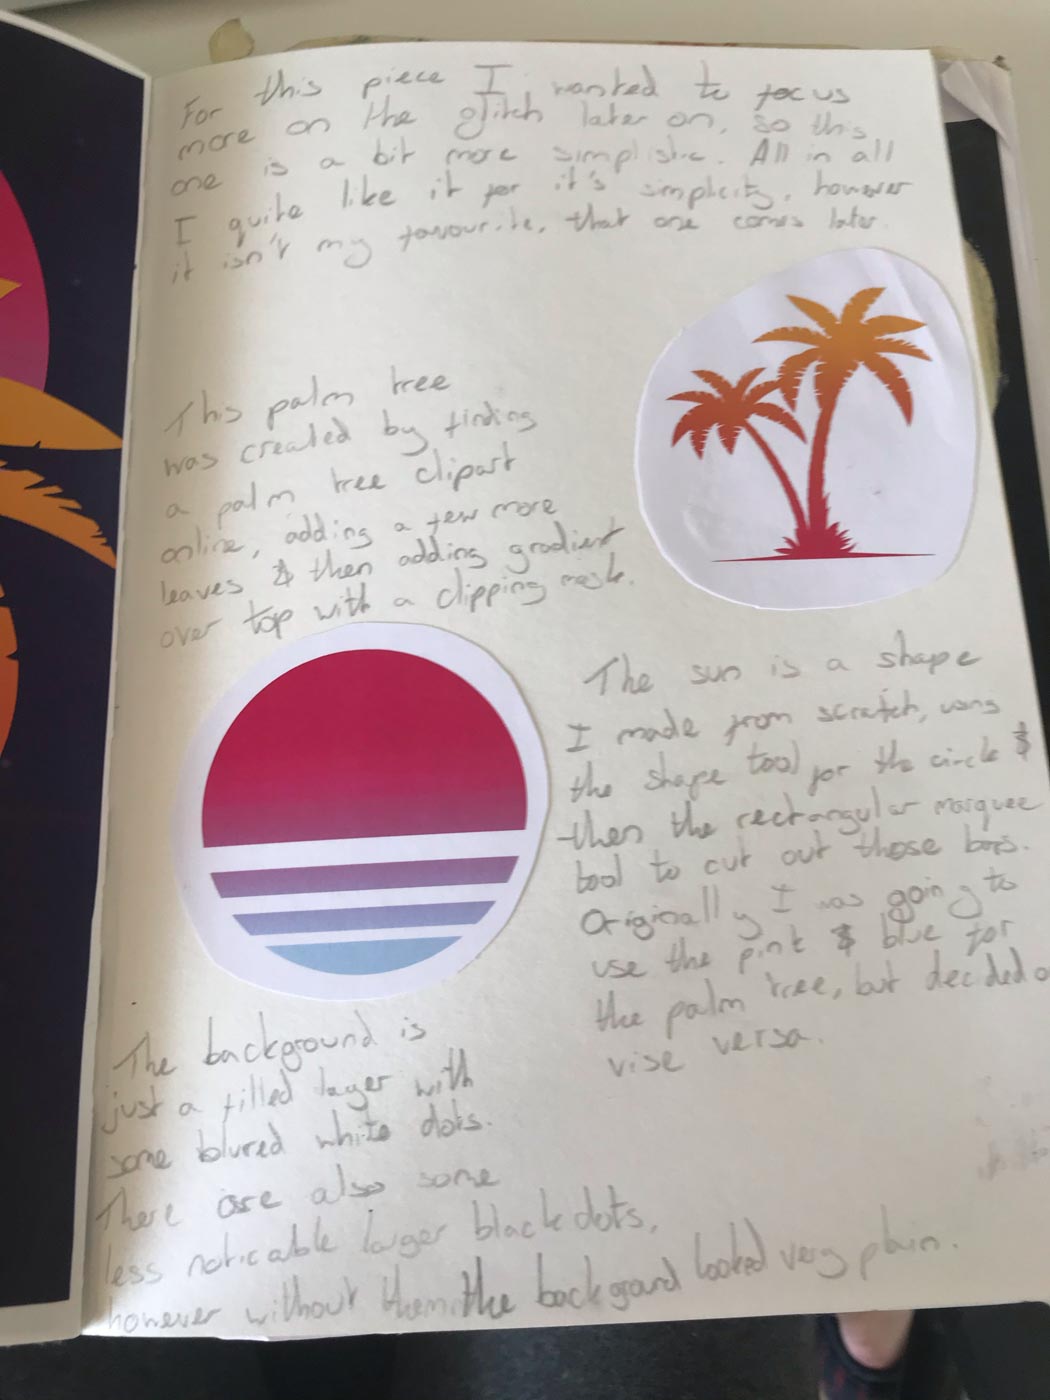 For this piece I wanted to focus
more on the glitch later on, so this
one is a bit more simplistic. All in all
I quite like it for it's simplicity, however
it isn't my favourite, that one comes later.
This palm tree
was created by finding
a palm tree clipart
online, adding a few more
leaves & then adding gradient
over top with a clipping mask.
The sun is a shape
I made from scratch, using
the shape tool for the circle &
then the rectangular marquee
tool to cut out those bars.
Originally I was going to
use the pink & blue for
the palm tree, but decided
vise versa.
The background is
just a filled layer with
some blured white dots.
There are also some
less noticable larger black dots,
however without them the backgroud looked very plain.